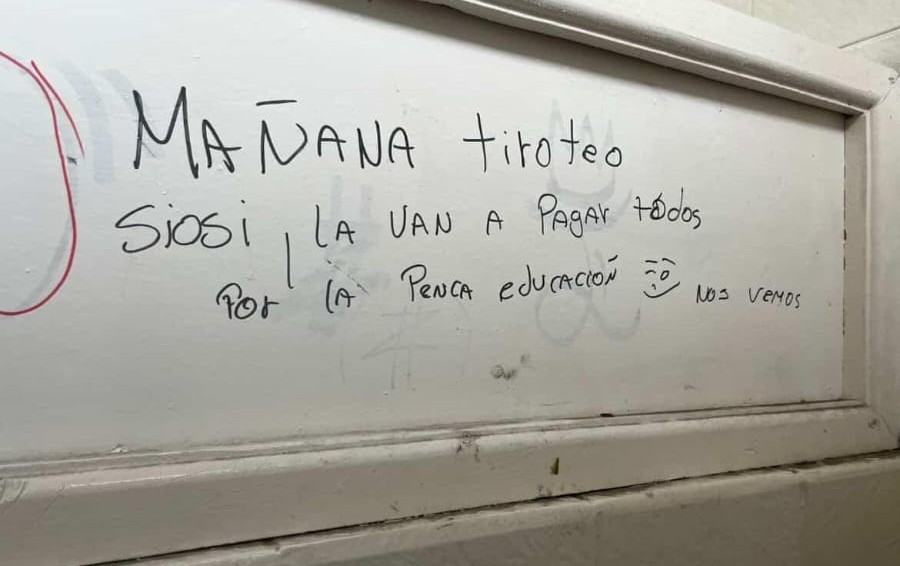 MAÑANA tiroteo
Siosi, LA VAN A PAGAR todos
Por LA PENCA educACIÓN NOS VEMOS